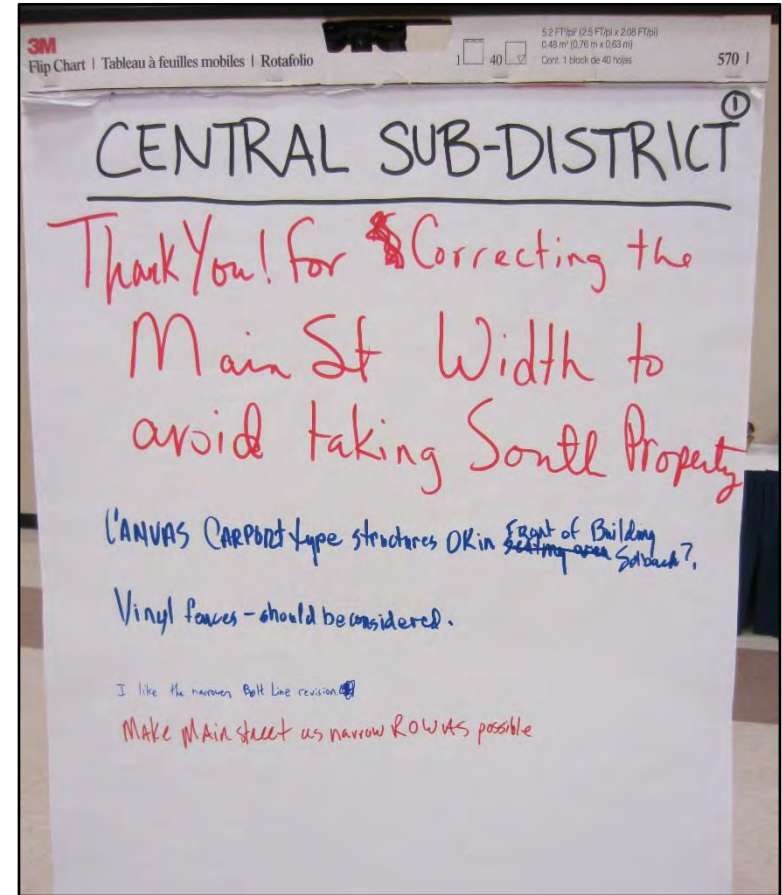 3M
Flip Chart | Tableau à feuilles mobiles | Rotafolio
1 40
5.2 FT²/pi² (2.5 FT/pi x 2.08 FT/pi)
0.48 m² (0,76 m x 0,63 m)
Cont. 1 block de 40 hojas
570
1
CENTRAL SUB-DISTRICT
Thank You! for Correcting the
Main St Width to
avoid taking South Property
CANVAS CARPORT type structures OK in Front of Building
seating area Setback?
Vinyl fences - should be considered.
I like the narrower Belt Line revision
MAKE MAin street as narrow ROW AS possible